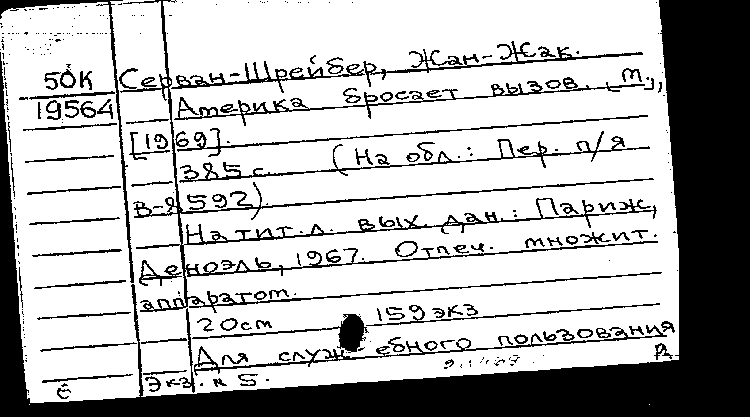 50К Серван-Шрейбер, Жан-Жак.
19564 Америка бросает вызов. [М.],
[1969].
385 с. (На обл.: Пер. п/я
В-8592).
На тит. л. вых. дан.: Париж,
Деноэль, 1967. Отпеч. множит.
аппаратом.
20см 159 экз
Для служебного пользования
Экз. № 5.
б